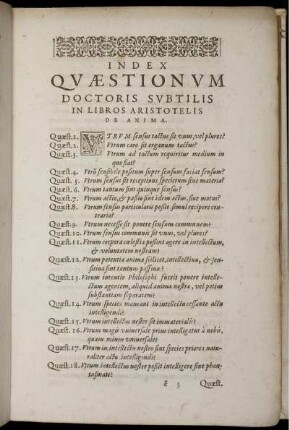 INDEX
QVÆSTIONVM
DOCTORIS SVBTILIS
IN LIBROS ARISTOTELIS
DE ANIMA.
Quæst.1. VTRVM sensus tactus sit vnus, vel plures?
Quæst.2. Vtrum caro sit organum tactus?
Quæst.3. Vtrum ad tactum requiritur medium in
quo fiat?
Quæst.4. Vtrũ sensibile positum super sensum faciat sensum?
Quæst.5. Vtrum sensus sit receptiuus specierum sine materia?
Quæst.6. Vtrum tantum sint quinque sensus?
Quæst.7. Vtrum actio, & passio sint idem actus, siue motus?
Quæst.8. Vtrum sensus particularis possit simul recipere con-
traria?
Quæst.9. Vtrum necesse sit ponere sensum communem?
Quæst.10. Vtrum sensus communis sit vnus, vel plures?
Quæst.11. Vtrum corpora cælestia possint agere in intellectum,
& voluntatem nostram?
Quæst.12. Vtrum potentia animæ scilicet, intellectiua, & sen-
sitiua sint tantum passiuæ?
Quæst.13. Vtrum intentio Philosophi fuerit ponere intelle-
ctum agentem, aliquid animæ nostræ, vel potius
substantiam separatam?
Quæst.14. Vtrum species maneant in intellectu cessante actu
intelligendi?
Quæst.15. Vtrum intellectus noster sit immaterialis?
Quæst.16. Vtrum magis vniuersale prius intelligatur à nobis,
quàm minus vniuersale?
Quæst.17. Vtrum in intellectu nostro sint species priores natu-
raliter actu intelligendi?
Quæst.18. Vtrum intellectus noster possit intelligere sine phan-
tasmate?
ẽ 3 Quæst.